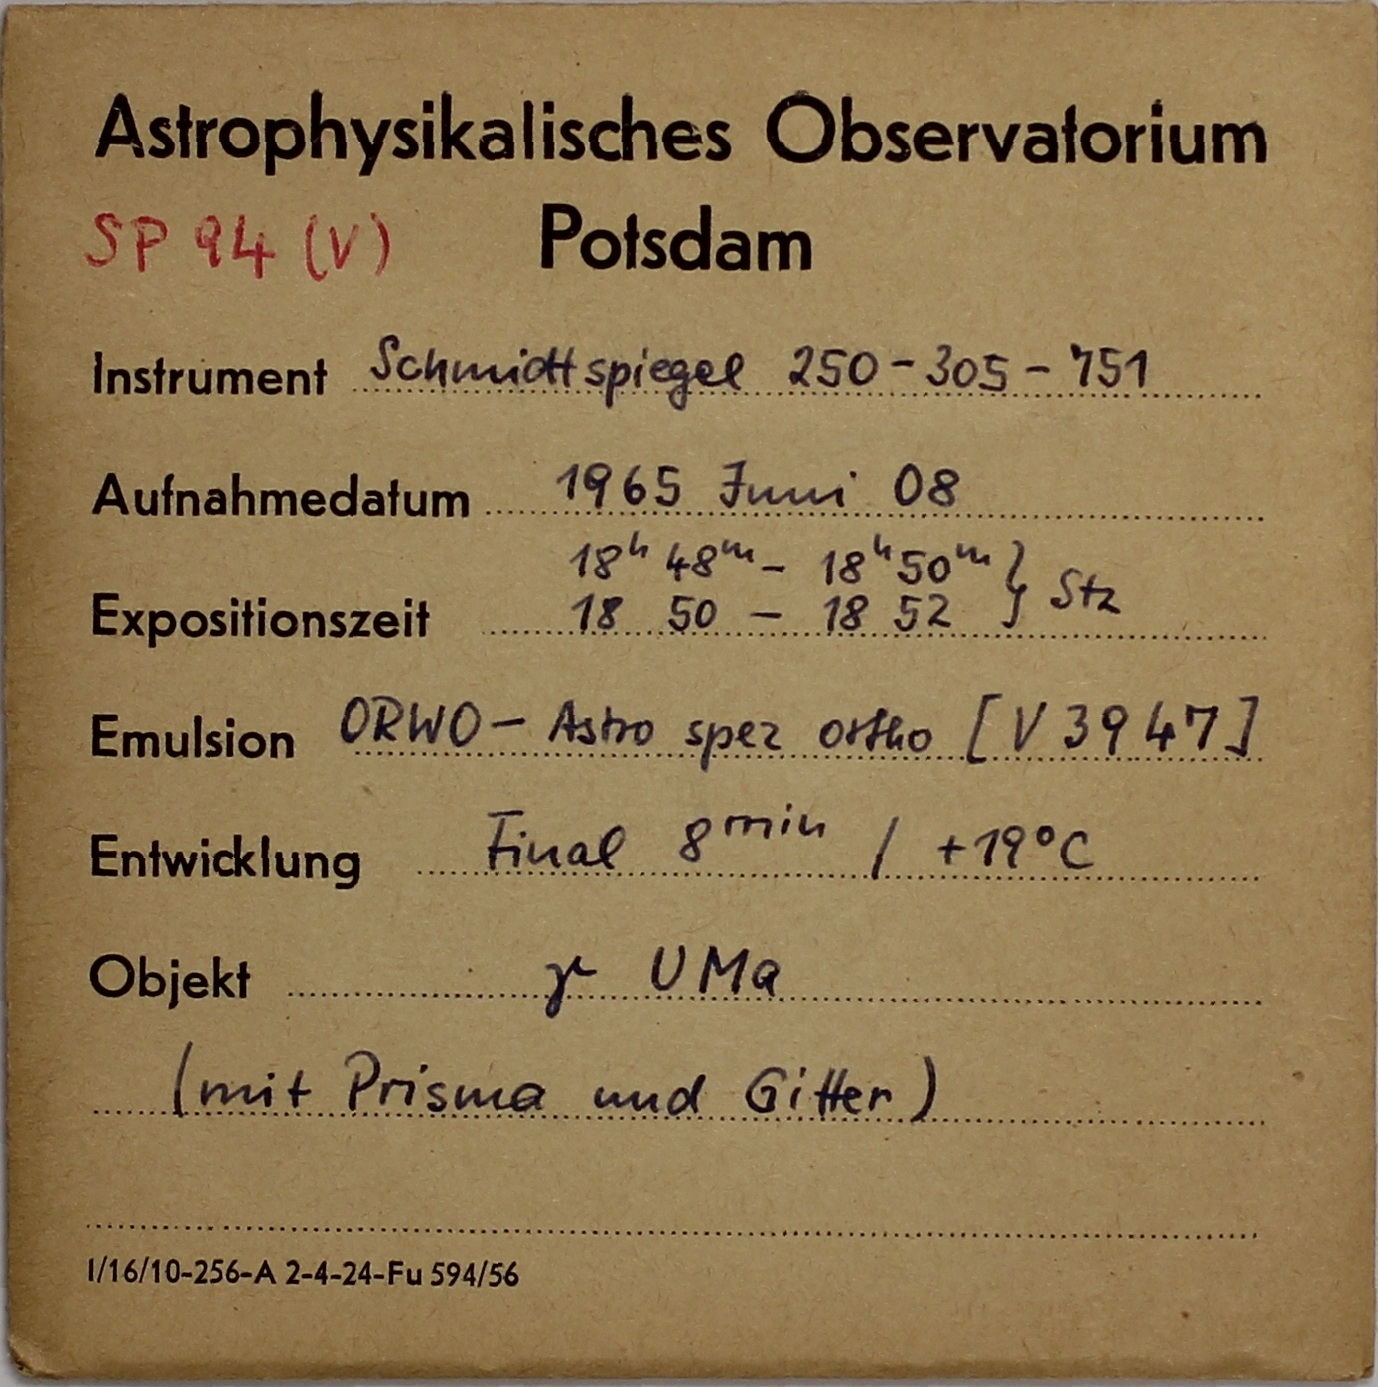 Astrophysikalisches Observatorium
SP 94 (V) Potsdam
Instrument Schmidtspiegel 250-305-751
Aufnahmedatum 1965 Juni 08
18h 48m - 18h 50m } Stz
Expositionszeit 18 50 - 18 52
Emulsion ORWO- Astro spez ortho [V 3947]
Entwicklung Final 8min / +19°C
Objekt γ UMa
(mit Prisma und Gitter)
I/16/10-256-A 2-4-24-Fu 594/56